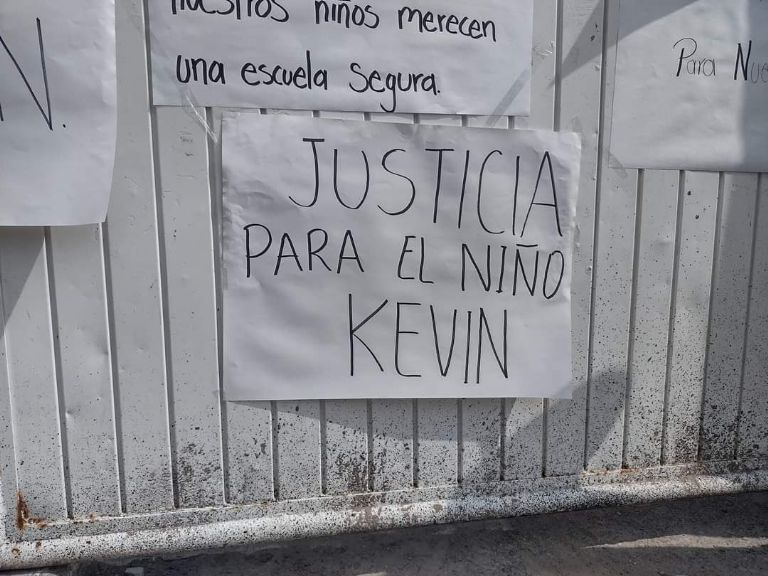 nuestros niños merecen
una escuela segura.
N.
Para Nue
JUSTICIA
PARA EL NIÑO
KEVIN